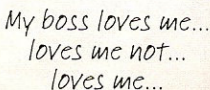 My boss loves me...
loves me not...
loves me...